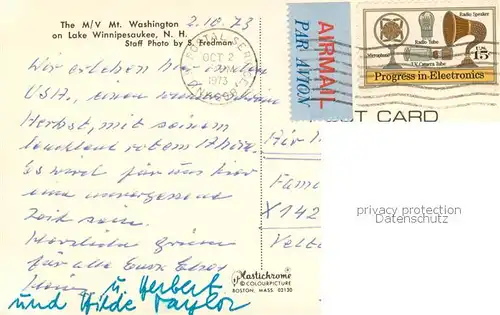 The M/V Mt. Washington
on Lake Winnipesaukee, N. H.
Staff Photo by S. Fredman
2.10.73
POSTAL SERVICE
OCT 2
1973
AIRMAIL
PAR AVION
Radio Speaker
Radio Tube
Microphone
TV Camera Tube
U.S. 15c
Progress in Electronics
POST CARD
Wir erleben hier in den
USA, einen wunderschönen
Herbst, mit seinem
leuchtend rotem
Es wird für uns hier
eine unvergessene
Zeit sein.
Herzliche Grüße
für alle Eure
u. Herbert
und Hilde Taylor
Air
Fam
X142
Velt
privacy protection
Datenschutz
Plastichrome®
© COLOURPICTURE
BOSTON, MASS 02130